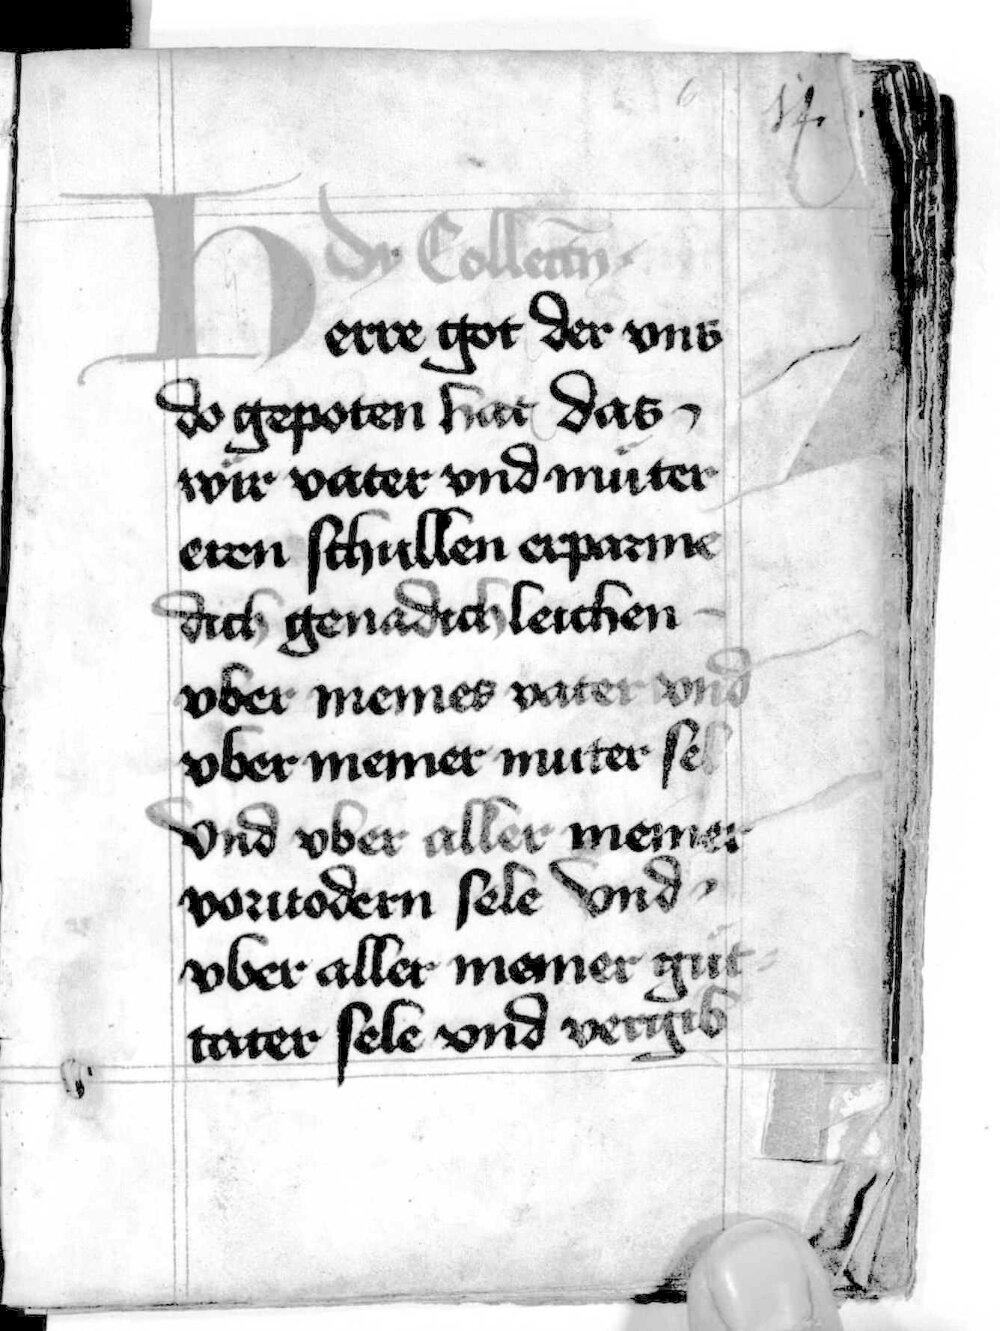 14.
dy Collectñ
Herre got der vns
do gepoten hat das
wir vater vnd müter
eren schullen erparme
dich genadichleichen
vber meines vater vnd
vber meiner muter sel
Vnd vber aller meiner
voruodern sele Vnd
vber aller meiner güt
tater sele vnd vergib